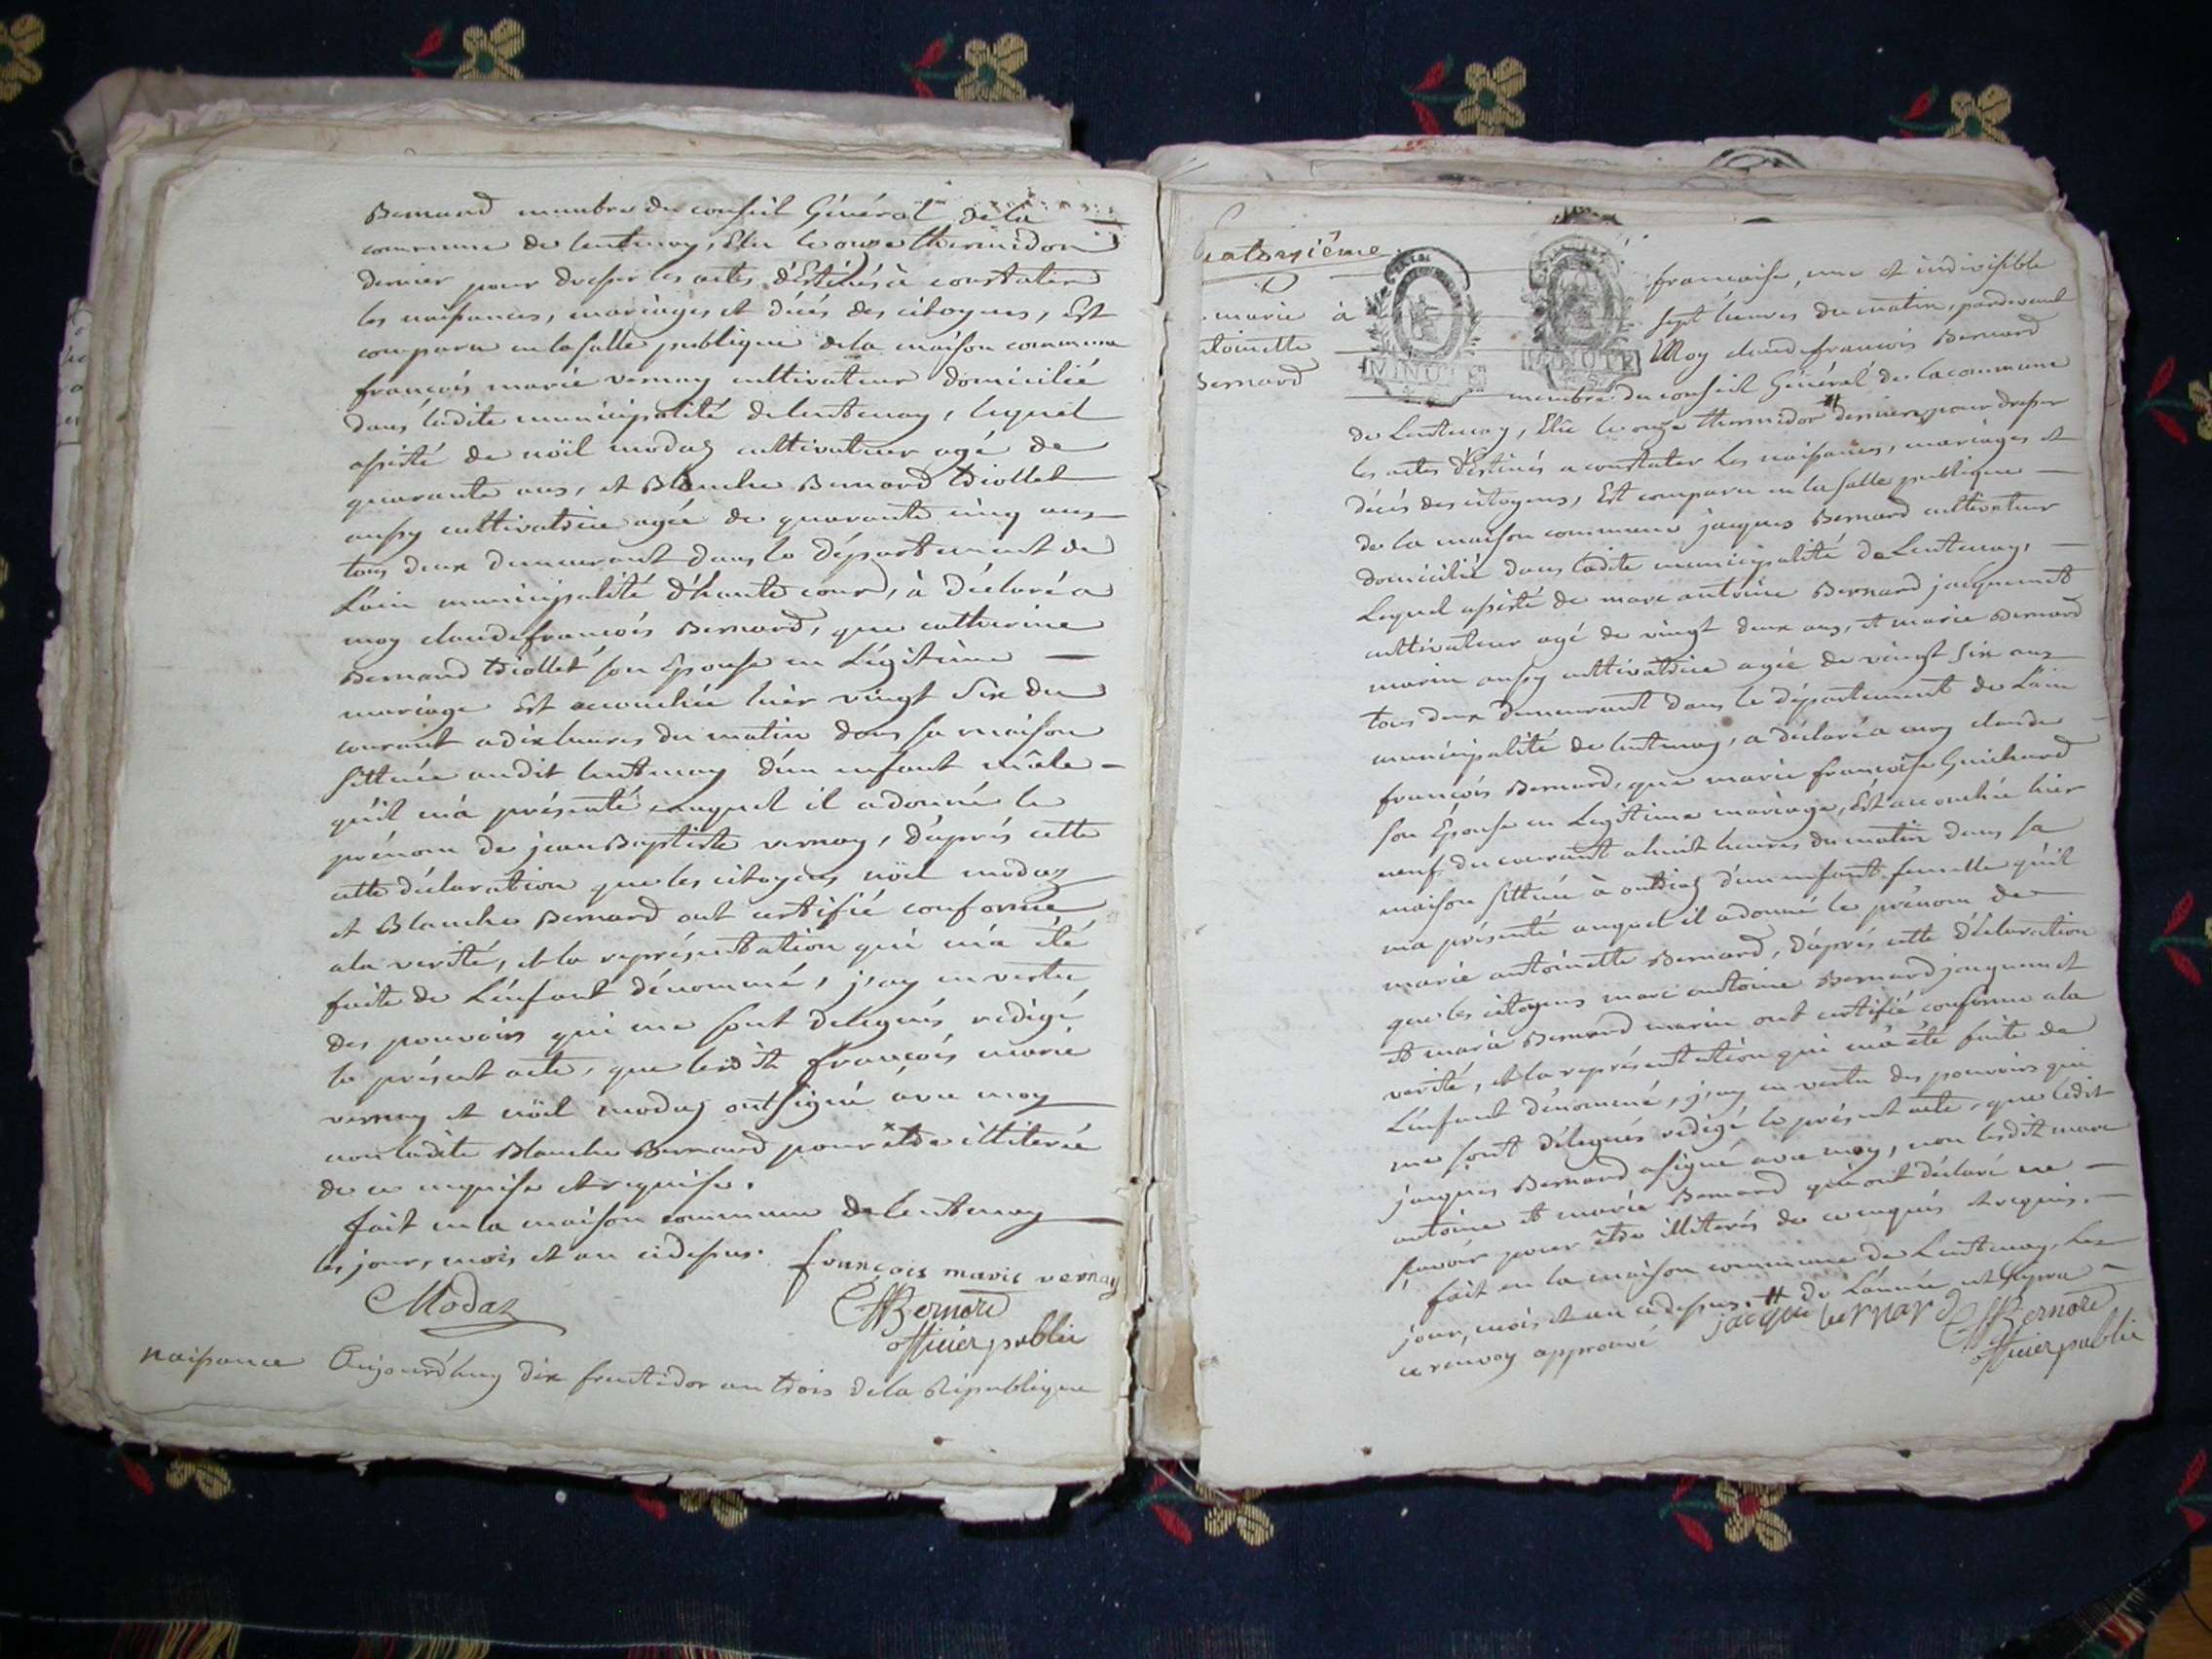 Bernard membre du conseil Général de la
commune de lentenay, Elu le onze thermidor
dernier pour dresser les actes d'Estinés à constater
les naissances, mariages et décés des citoyens, Est
comparu en la salle publique de la maison commune
françois marie vernay cultivateur domicilié
dans ladite municipalité de lentenay, lequel
assisté de nöel modaz cultivateur agé de
quarante ans, et Blanche Bernard tiollet
aussy cultivatrice agée de quarante cinq ans
tous deux demeurant dans le département de
L'ain municipalité d'hautecour, à déclaré a
moy claude françois Bernard, que catherine
Bernard tiollet son Epouse en Légitime
mariage Est accouchée hier vingt Six du
courant a dix heures du matin dans sa maison
sittuée audit lentenay d'un enfant mâle
qu'il m'a présenté auquel il a donné le
prénom de jean Baptiste vernay, d'aprés cette
cette déclaration que les citoyens nöel modaz
et Blanche Bernard ont certifié conforme
a la verité, et la représentation qui m'a été
faite de L'enfant dénommé, j'ay en vertu
des pouvoirs qui me sont delegués redigé
le présent acte, que lesdit françois marie
vernay et nöel modaz ont signé avec moy
non ladite Blanche Bernard pour être illiterée
de ce enquise et requise.
fait en la maison commune de lentenay
les jour, mois et an cidessus. françois marie vernay
Modaz
Bernard
officier public
naissance Aujourd'huy dix fructidor an trois de la République
quatorzième
marie
antoinette
Bernard
à
MINUTE
MINUTE
francaise, une et indivisible
sept heures du matin, pardevant
Moy claude francois Bernard
membre du conseil Général de la commune
de Lentenay, Elu le onze thermidor # dernier, pour dresser
les actes d'Estinés a constater les naissances, mariages et
décés des citoyens, Est comparu en la salle publique
de la maison commune jacques Bernard cultivateur
domicilié dans ladite municipalité de Lentenay,
Lequel assisté de marc antoine Bernard jacquemet
cultivateur agé de vingt deux ans, et marie Bernard
marin aussy cultivatrice agée de vingt six ans
tous deux demeurant dans le département de Lain
municipalité de lentenay, a déclaré a moy claude
francois Bernard, que marie françoise Guichard
son Epouse en Legitime mariage, Est accouchée hier
neuf du courant a huit heures du matin dans sa
maison sittuée à d'un enfant femelle qu'il
ma présenté auquel il a donné le prénom de
marie antoinette Bernard, d'aprés cette déclaration
que les citoyens marc antoine Bernard jacquemet
et marie Bernard marin ont certifié conforme a la
verité, et la représentation qui m'a été faite de
L'enfant dénommé, j'ay en vertu des pouvoirs qui
me sont délegués redigé le présent acte, que ledit
jacques Bernard a signé avec moy, non lesdit marc
antoine et marie Bernard qui ont déclaré ne
scavoir pour être illiterés de ce enquis et requis.
fait en la maison commune de Lentenay les
jour, mois et an cidessus. # de L'année
ce renvoy approuvé jacque bernard Bernard
officier public